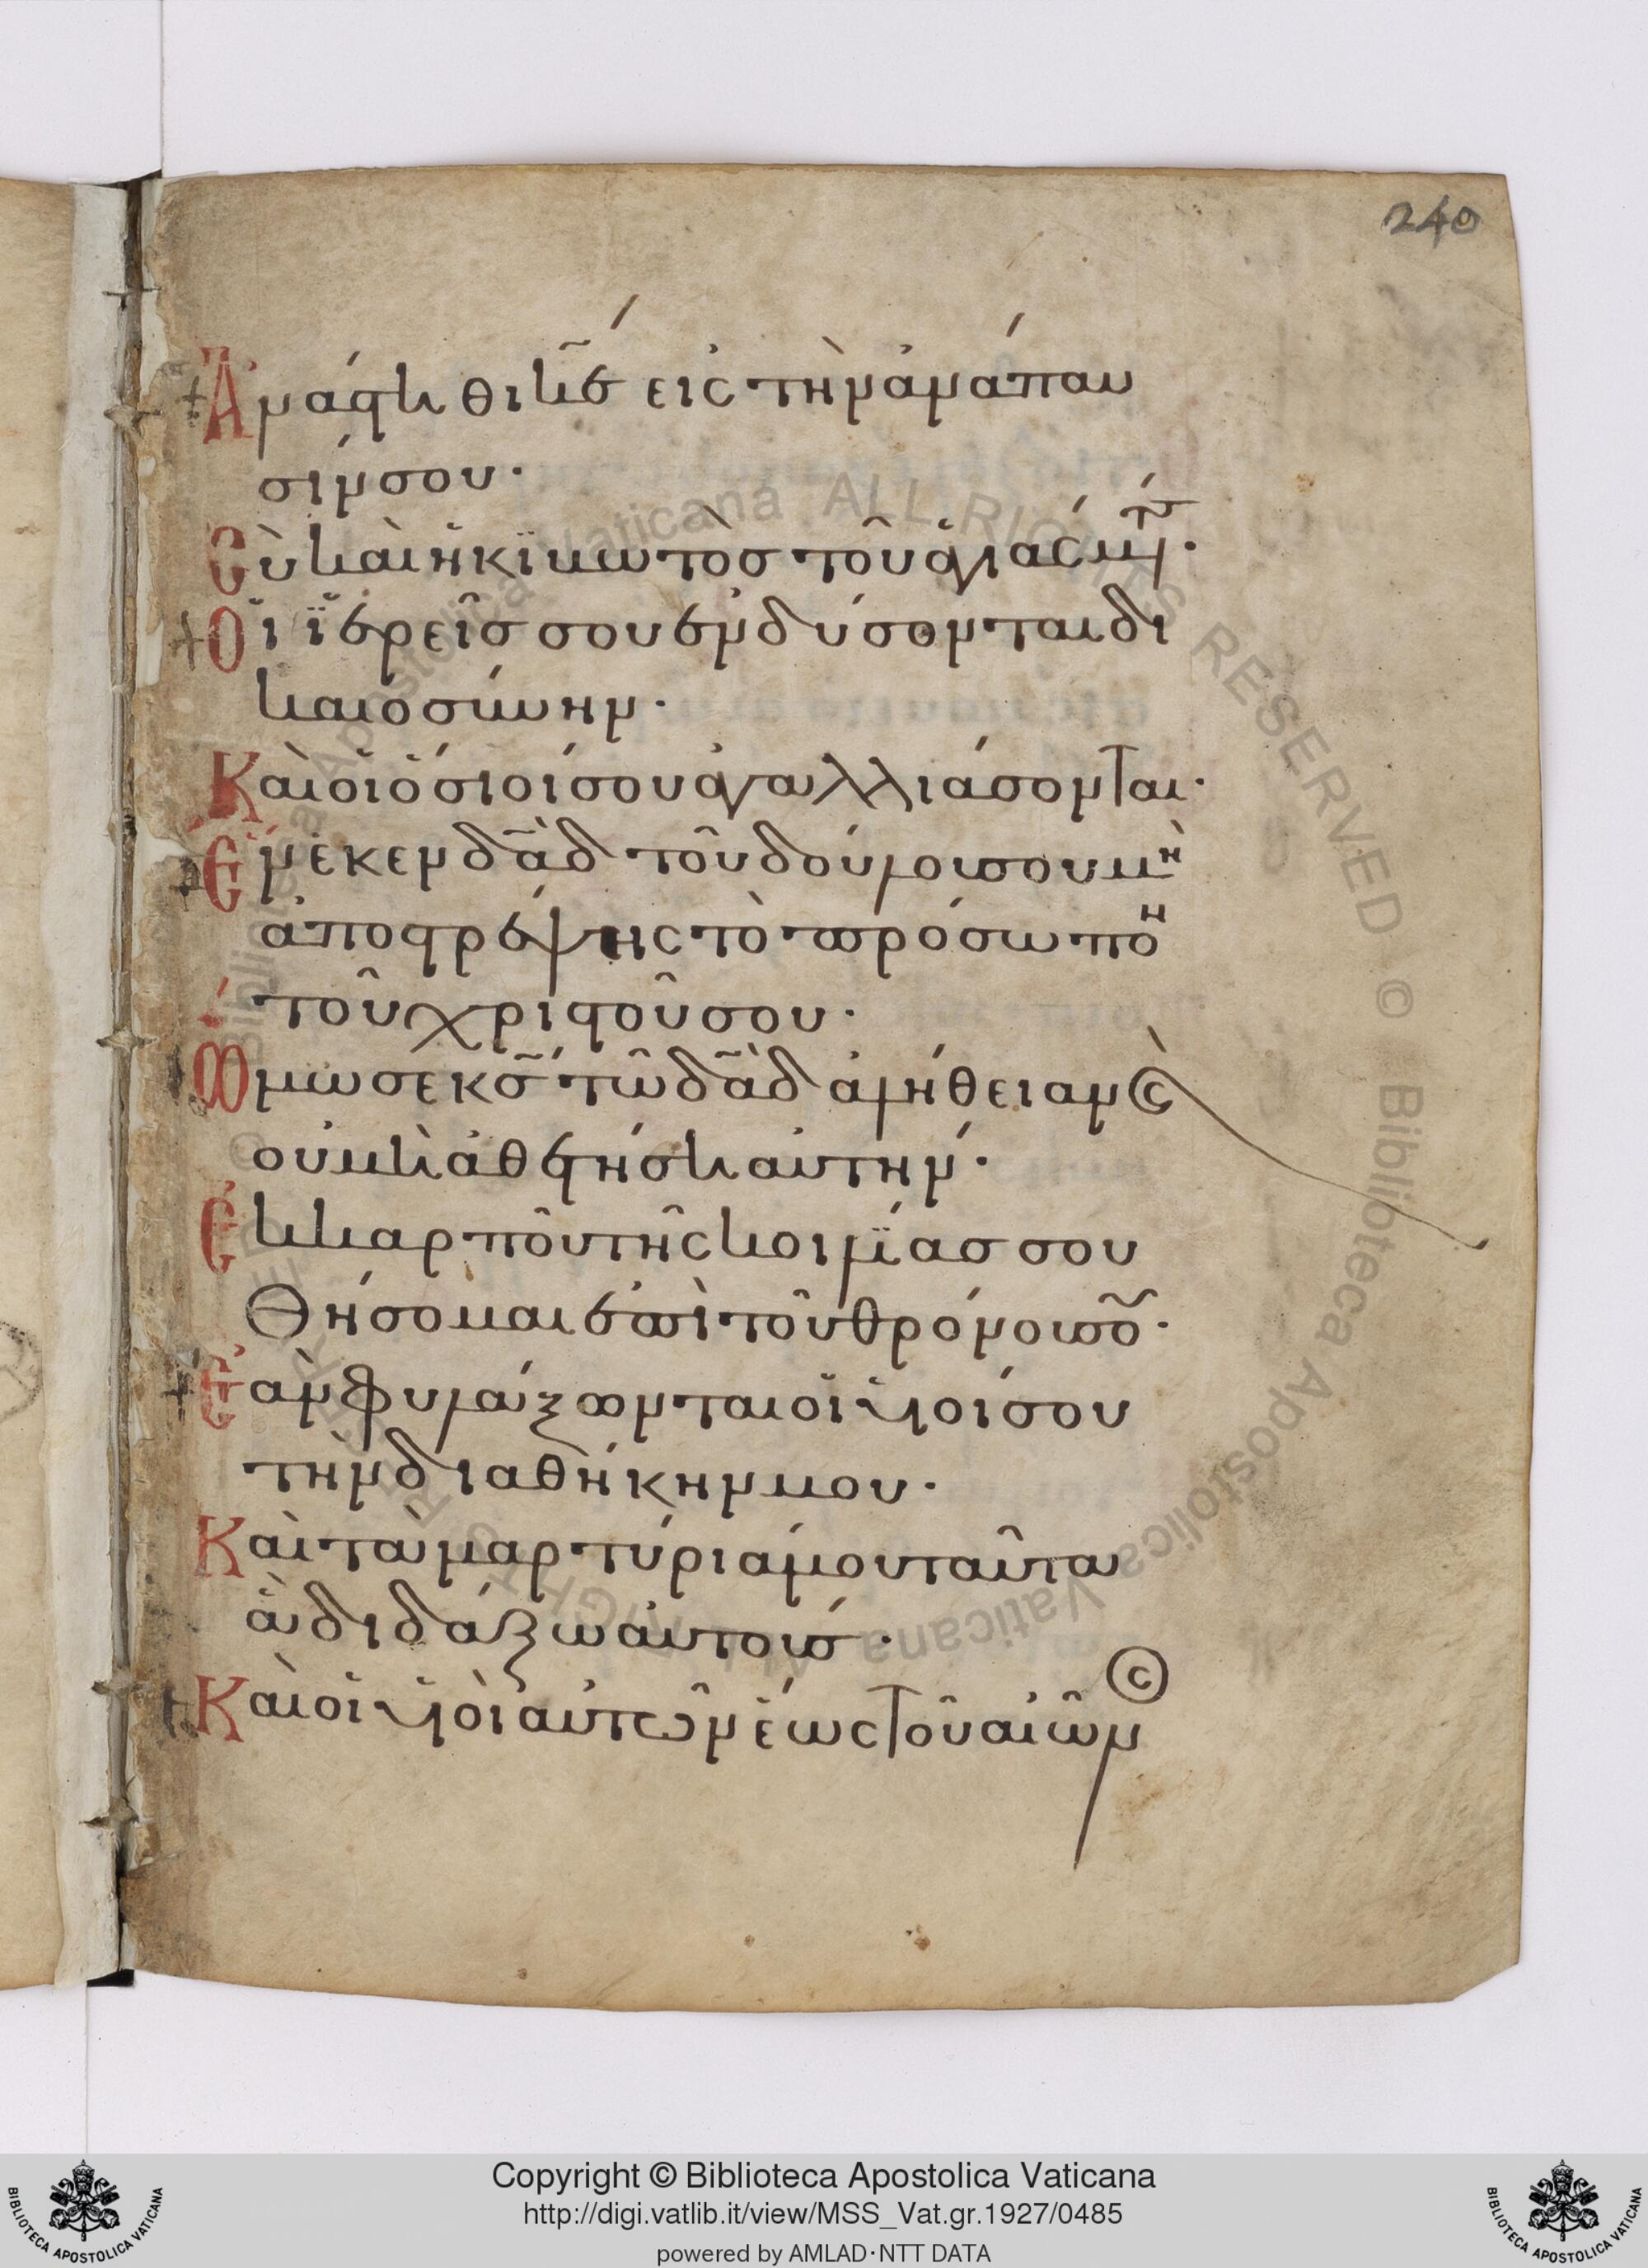 240
Ἀνάστηθι κ̅ε̅ εἰς τὴν ἀνάπαυ
σίν σου·
Σὺ καὶ ἡ κιβωτὸς τοῦ ἁγιάσμ τ·
Οἱ ἱερεῖς σου ἐνδύσονται δι
καιοσύνην·
Καὶ οἱ ὅσιοί σου ἀγαλλιάσονται·
Ἕνεκεν δα̅δ̅ τοῦ δούλου σου μὴ
ἀποστρέψης τὸ πρόσωπον
τοῦ χριστοῦ σου·
Ὤμωσε κ̅ς̅ τῶ δα̅δ̅ ἀλήθειαν (καὶ)
οὐ μὴ ἀθετήσει αὐτήν·
Ἐκ καρποῦ τῆς κοιλίας σου
Θήσομαι ἐπὶ τοῦ θρόνου σου·
Ἐὰν φυλάξωνται οἱ υἱοί σου
τὴν διαθήκην μου·
Καὶ τὰ μαρτύριά μου ταῦτα
ἃ διδάξω αὐτούς·
Καὶ οἱ υἱοὶ αὐτῶν ἕως τοῦ αἰῶν
Copyright © Biblioteca Apostolica Vaticana
http://digi.vatlib.it/view/MSS_Vat.gr.1927/0485
powered by AMLAD·NTT DATA
BIBLIOTECA APOSTOLICA VATICANA
BIBLIOTECA APOSTOLICA VATICANA